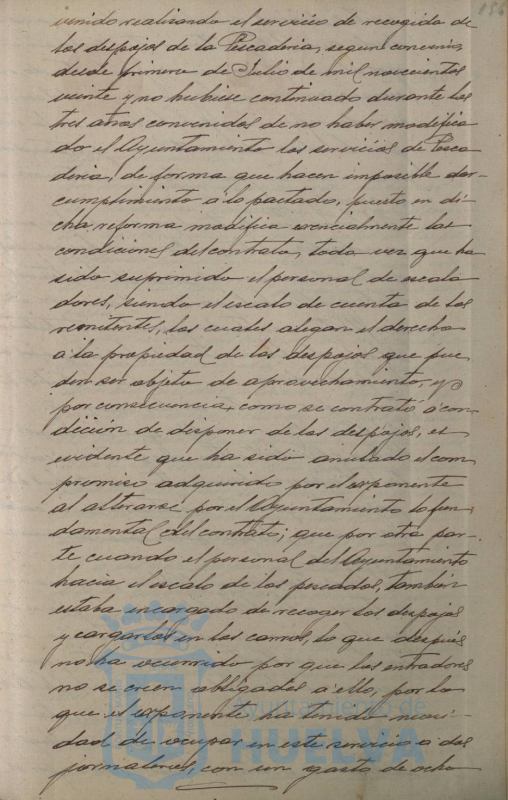 156
venido realizando el servicio de recogida de
los despojos de la Pescaderia, segun convenio,
desde primero de Julio de mil novecientos
veinte y no hubiese continuado durante los
tres años convenidos de no haber modifica
do el Ayuntamiento los servicios de Pesca
deria, de forma que hacen imposible dar
cumplimiento á lo pactado, puesto en di-
cha reforma modifica esencialmente las
condiciones del contrato, toda vez que ha
sido suprimido el personal de escala
dores, siendo el escalo de cuenta de los
remitentes, los cuales alegan el derecho
á la propiedad de los despojos que pue
den ser objeto de aprovechamiento, y
por consecuencia, como se contrató á con-
dición de disponer de los despojos, es
evidente que ha sido anulado el com
promiso adquirido por el exponente
al alterarse por el Ayuntamiento lo fun-
damental del contrato; que por otra par-
te cuando el personal del Ayuntamiento
hacia el escalo de los pescados, tambien
estaba encargado de recoger los despojos
y cargarlos en los carros, lo que después
no ha ocurrido por que los entradores
no se creen obligados á ello, por lo
que el exponente ha tenido nece-
dad de ocupar en este servicio a dos
jornaleros, con un gasto de ocho
Ayuntamiento de
HUELVA